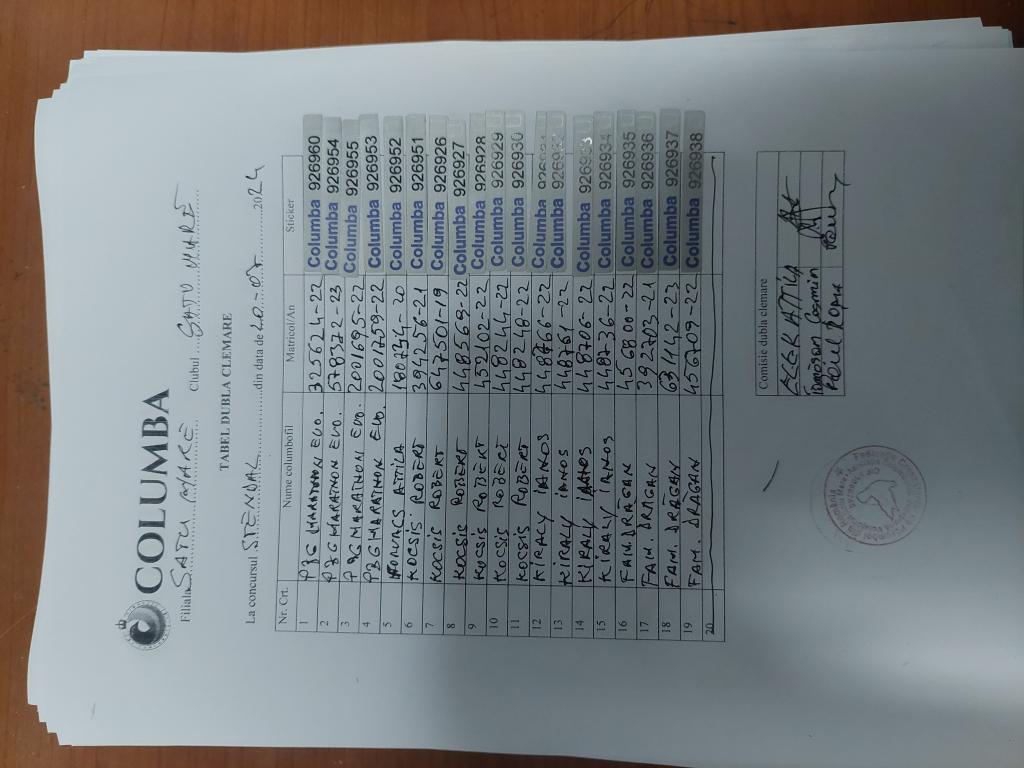 COLUMBA
Filiala SATU MARE Clubul SATU MARE
TABEL DUBLA CLEMARE
La concursul STENDAL din data de 20-07- 2024
Nr. Crt. Nume columbofil Matricol/An Sticker
1 PBG MARATHON EVO. 325624-22 Columba 926960
2 PBG MARATHON EVO. 578372-23 Columba 926954
3 PBG MARATHON EVO. 2001695-22 Columba 926955
4 PBG MARATHON EVO. 2001759-22 Columba 926953
5 KOVACS ATTILA 180744-20 Columba 926952
6 KOCSIS ROBERT 394256-21 Columba 926951
7 KOCSIS ROBERT 647501-19 Columba 926926
8 KOCSIS ROBERT 448569-22 Columba 926927
9 KOCSIS ROBERT 452102-22 Columba 926928
10 KOCSIS ROBERT 448244-22 Columba 926929
11 KOCSIS ROBERT 448248-22 Columba 926930
12 KIRALY IANOS 448766-22 Columba
13 KIRALY IANOS 448761-22 Columba
14 KIRALY IANOS 448706-22 Columba 926933
15 KIRALY IANOS 448736-22 Columba 926934
16 FAM. DRAGAN 456800-22 Columba 926935
17 FAM. DRAGAN 392703-21 Columba 926936
18 FAM. DRAGAN 63442-23 Columba 926937
19 FAM. DRAGAN 456709-22 Columba 926938
20
Comisie dubla clemare
ACCEK ATTILA
Tamasan Cosmin